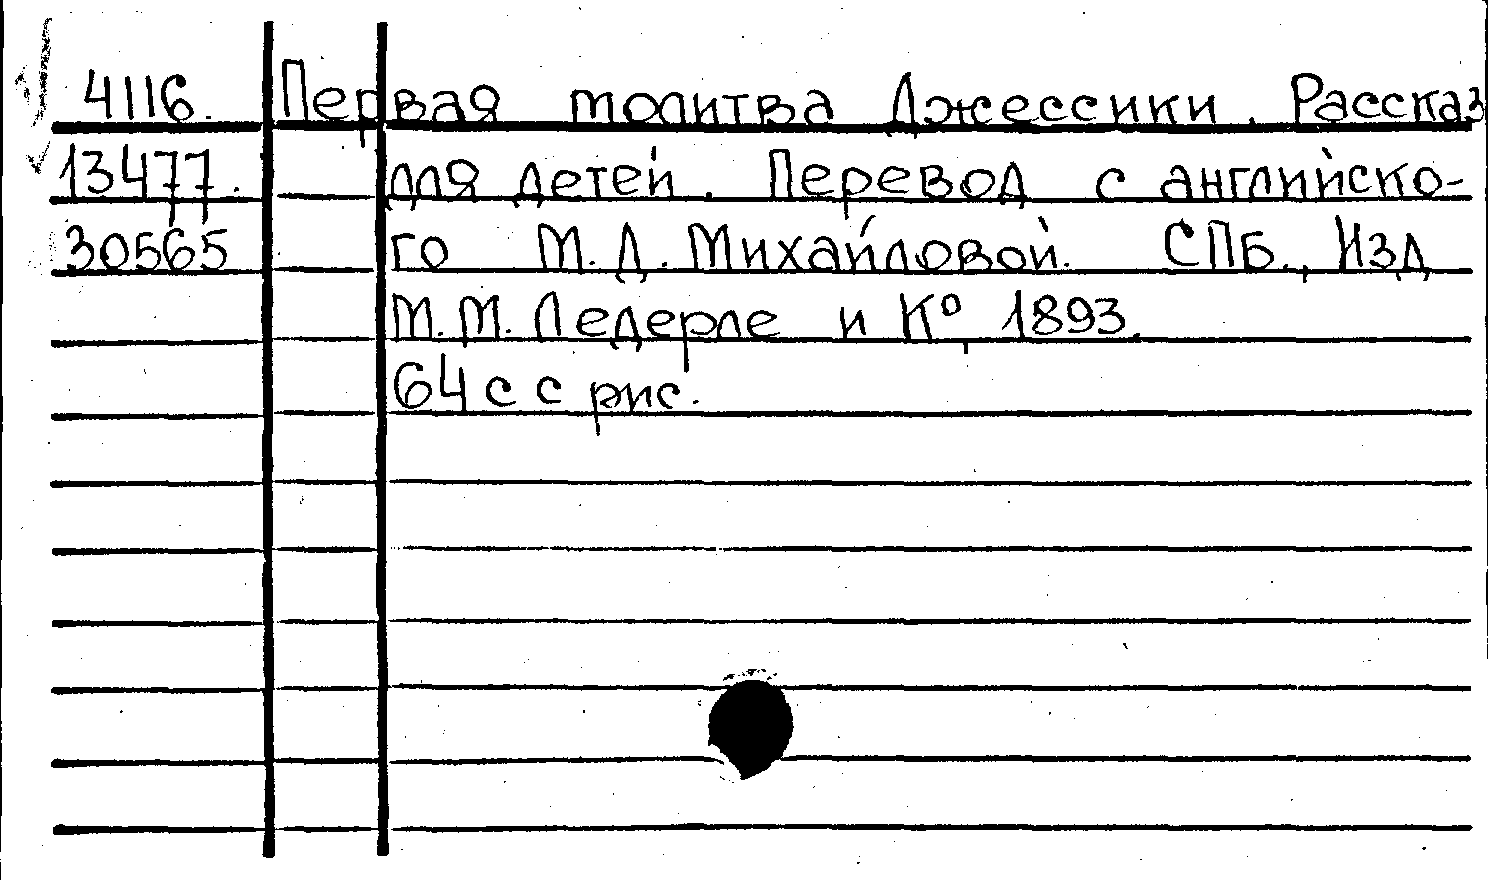 4116. Первая молитва Джессики. Рассказ
13477. для детей. Перевод с английско-
30565 го М.Д.Михайловой. СПБ., Изд
М.М.Ледерле и Кº, 1893.
64 с с рис.